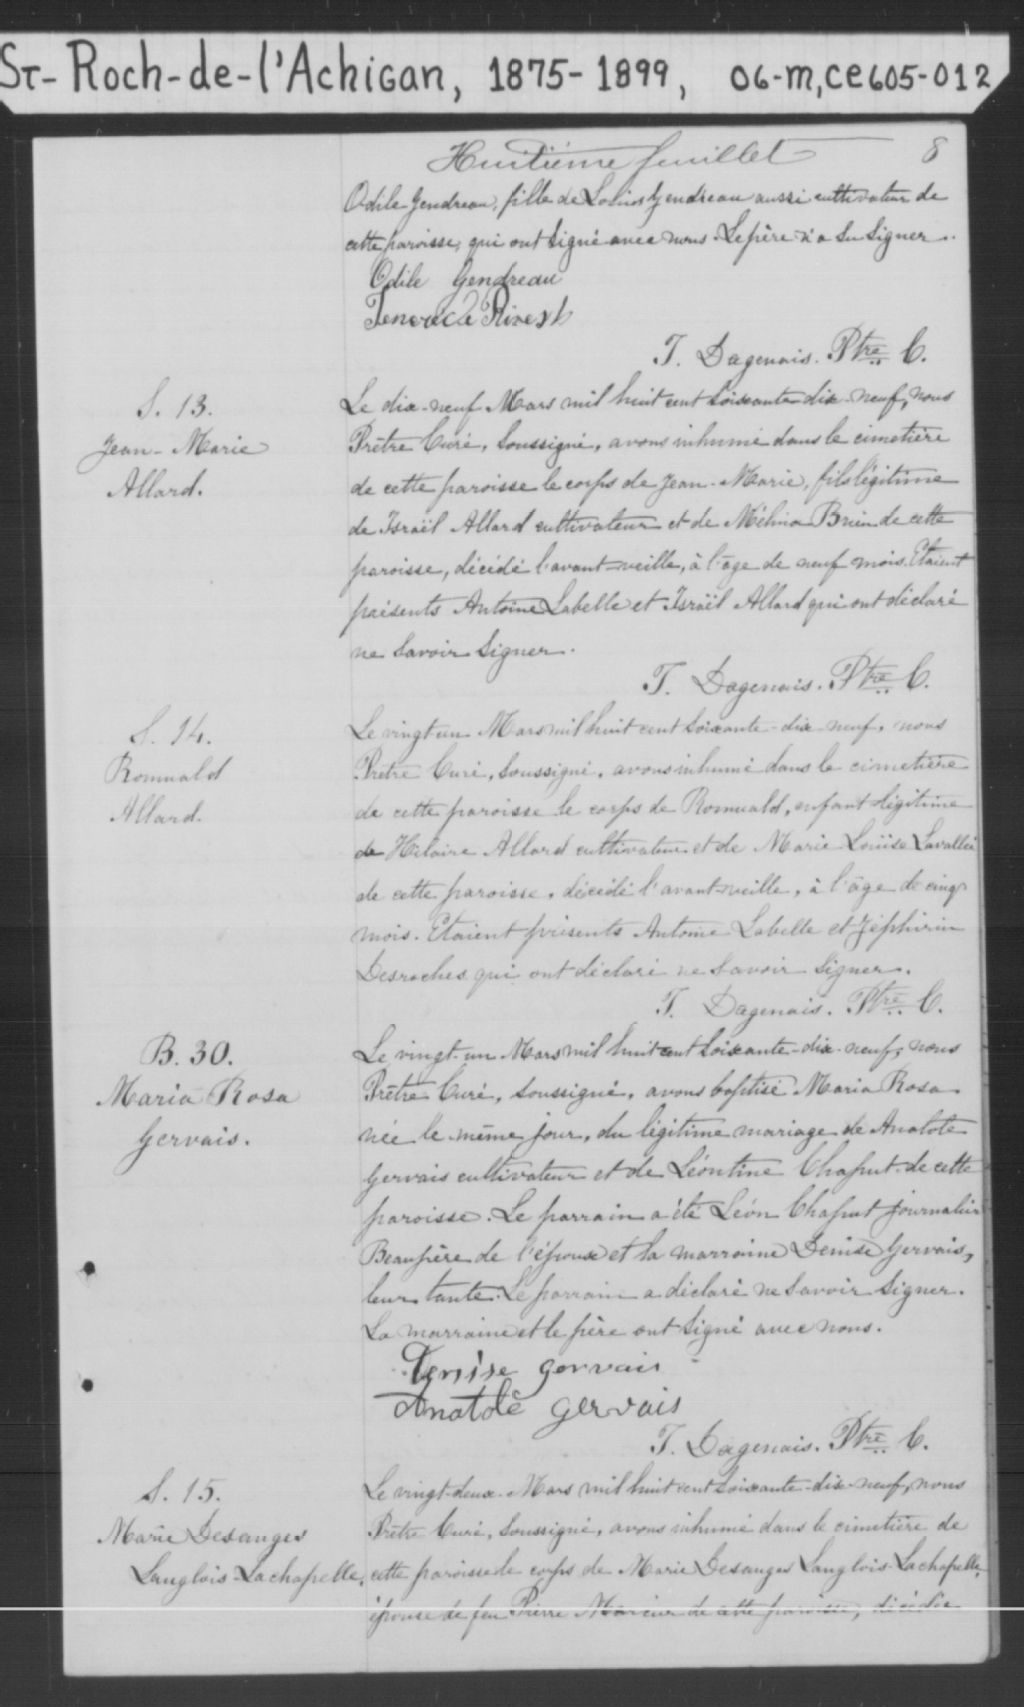 St-Roch-de-l'Achigan, 1875-1899, 06-m,ce605-012
Huitième feuillet 8
Odile Gendreau, fille de Gendreau aussi cultivateur de
cette paroisse, qui ont signé avec nous. Le père n'a su signer.
Odile Gendreau
Rivest
T. Dagenais. Ptre C.
S. 13.
Jean-Marie
Allard.
Le dix-neuf Mars mil huit cent soixante-dix-neuf, nous
Prêtre Curé, soussigné, avons inhumé dans le cimetière
de cette paroisse le corps de Jean-Marie, fils légitime
de Israïl Allard cultivateur et de Mélina Brien de cette
paroisse, décédé l'avant-veille, à l'âge de neuf mois. Etaient
présents Antoine Labelle et Israïl Allard qui ont déclaré
ne savoir signer.
T. Dagenais. Ptre C.
S. 14.
Romuald
Allard.
Le vingt un Mars mil huit cent soixante-dix-neuf, nous
Prêtre Curé, soussigné, avons inhumé dans le cimetière
de cette paroisse le corps de Romuald, enfant légitime
de Hilaire Allard cultivateur et de Marie Louise Lavallée
de cette paroisse, décédé l'avant-veille, à l'âge de cinq
mois. Etaient présents Antoine Labelle et Zéphirin
Desroches qui ont déclaré ne savoir signer.
T. Dagenais. Ptre C.
B. 30.
Maria Rosa
Gervais.
Le vingt-un Mars mil huit cent soixante-dix-neuf, nous
Prêtre Curé, soussigné, avons baptisé Maria Rosa
née le même jour, du légitime mariage de Anatole
Gervais cultivateur et de Léontine Chaput de cette
paroisse. Le parrain a été Léon Chaput journalier
Beaupère de l'épouse et la marraine Denise Gervais,
leur tante. Le parrain a déclaré ne savoir signer.
La marraine et le père ont signé avec nous.
Denise gervais
Anatole gervais
T. Dagenais. Ptre C.
S. 15.
Marie Desanges
Langlois Lachapelle.
Le vingt-deux Mars mil huit cent soixante-dix-neuf, nous
Prêtre Curé, soussigné, avons inhumé dans le cimetière de
cette paroisse le corps de Marie Desanges Langlois Lachapelle,
épouse de feu Pierre de cette paroisse, décédée